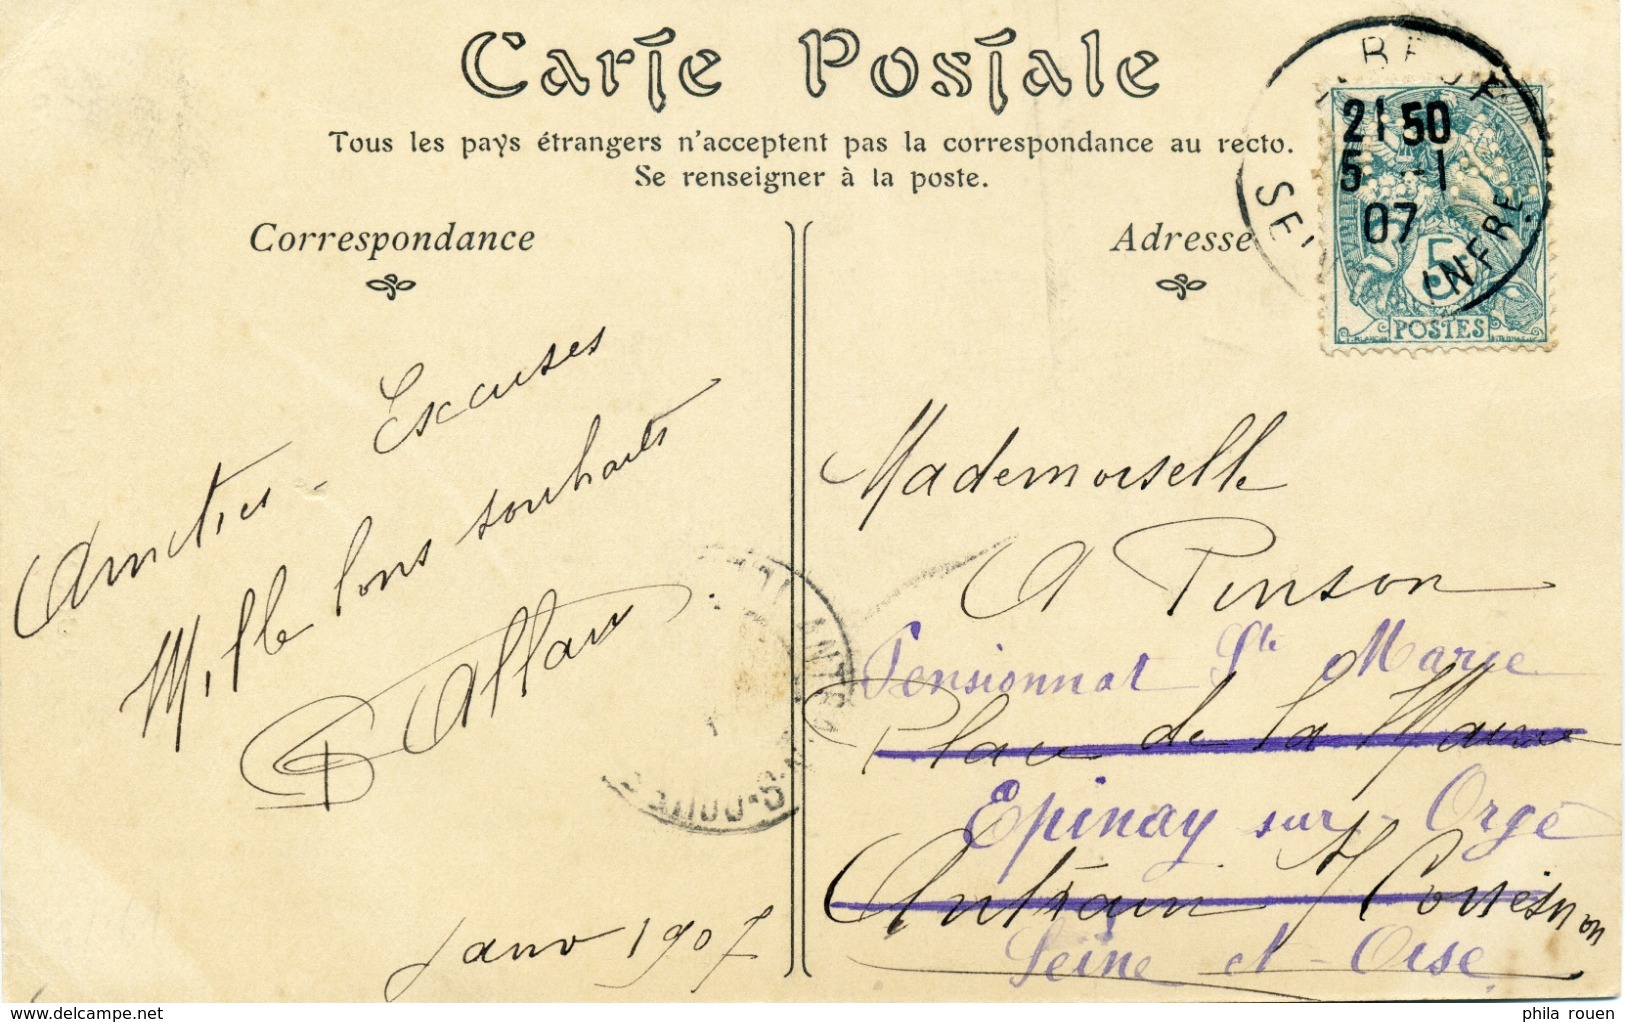 Carte Postale
Tous les pays étrangers n'acceptent pas la correspondance au recto.
Se renseigner à la poste.
Correspondance
Adresse
21 50
5 -1
07
INFRE
5
POSTES
Amitiés - Excuses
Mille bons souhaits
Janv 1907
Mademoiselle
A Pinson
Pensionnat Ste Marie
Place de la Mairie
Epinay sur Orge
Antrain s/ Couësnon
Seine et Oise
www.delcampe.net
phila rouen